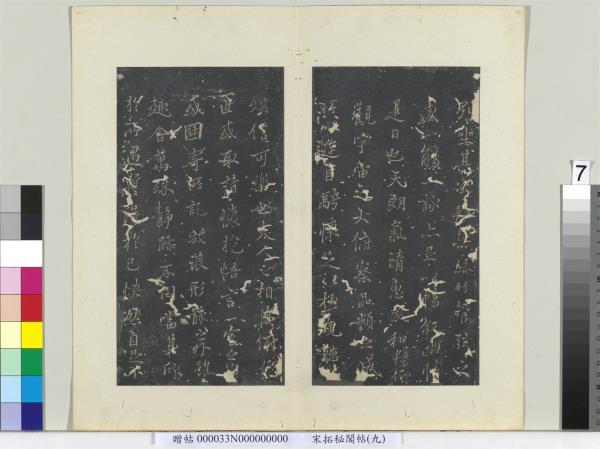 列坐其次雖無絲竹管弦之
盛一觴一詠亦足以暢敘幽情
是日也天朗氣清惠風和暢仰
觀宇宙之大俯察品類之盛
所以遊目騁懷足以極視聽
娛信可樂也夫人之相與俯仰
世或取諸懷抱悟言一室之內
或因寄所託放浪形骸之外雖
趣舍萬殊靜躁不同當其欣
於所遇暫得於己快然自足不
7
贈帖 000033N000000000 宋拓秘閣帖(九)